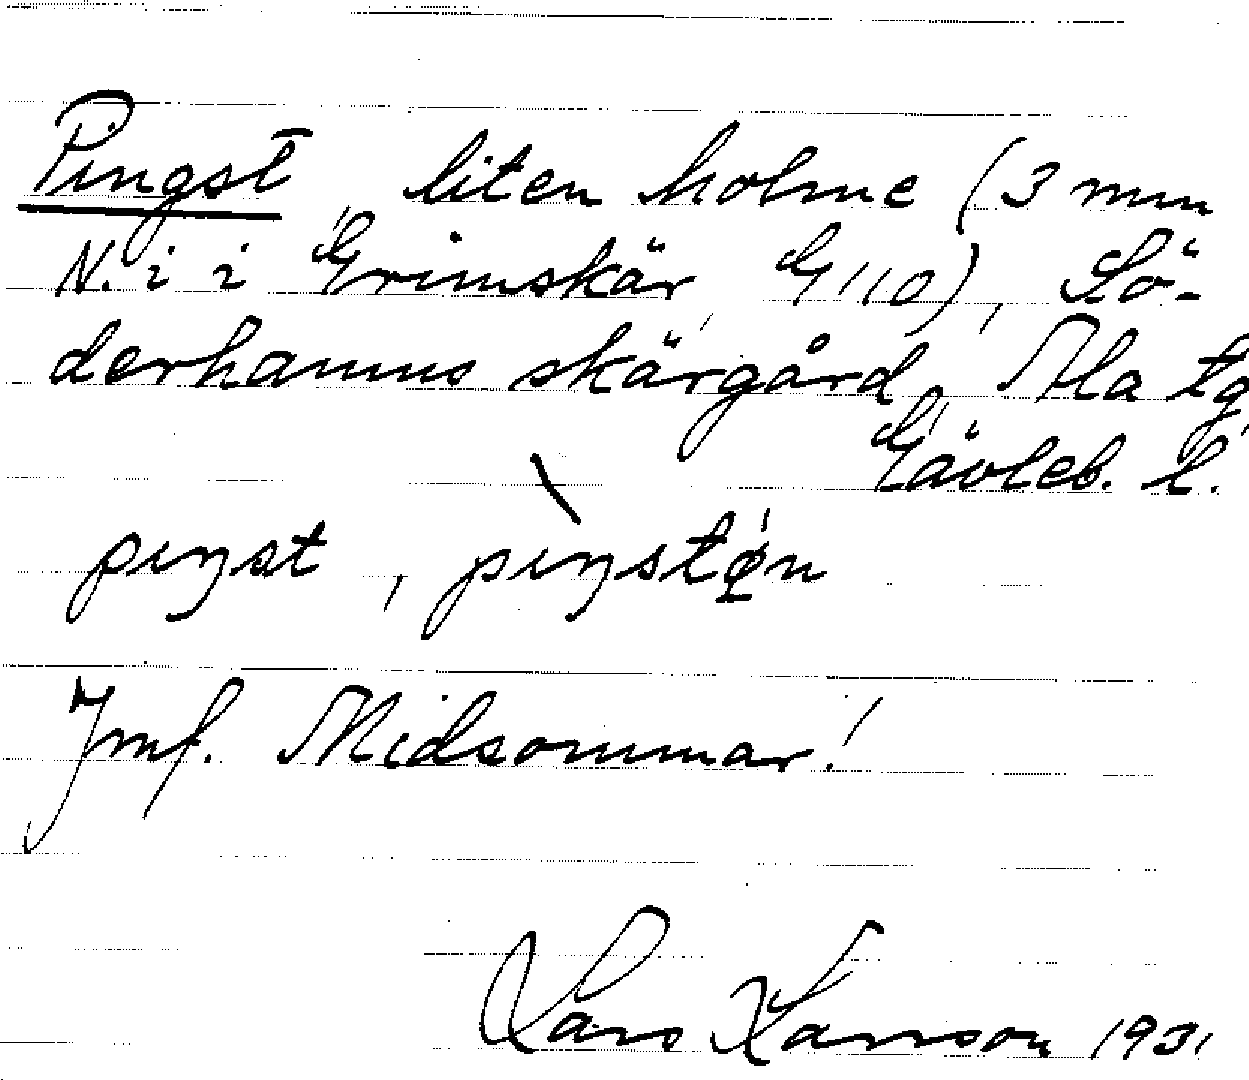 Pingst, liten holme (3 mm
N. i i Grimskär, G 110), Sö-
derhamns skärgård, Ala tg
Gävleb. l.
piŋst, pìŋstən
Jmf. Midsommar!
Lars Larsson 1931